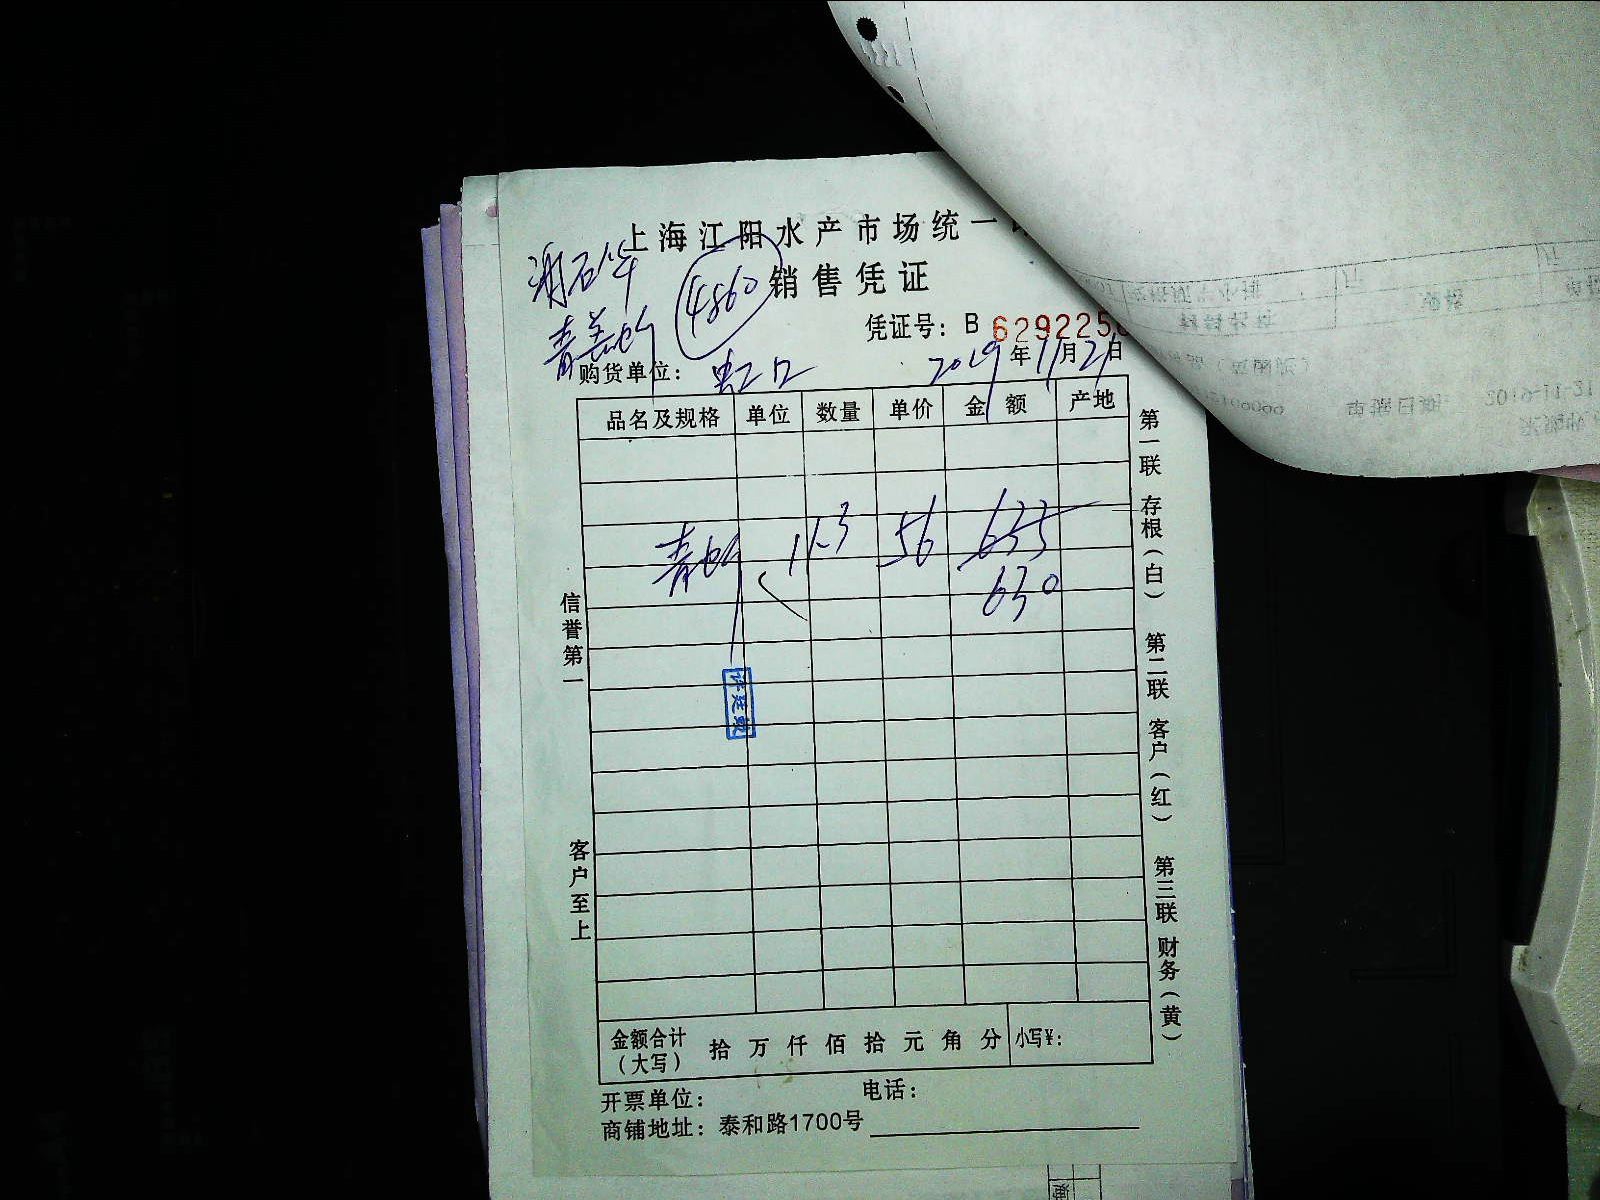 上海江阳水产市场统一
谢石华
4860
销售凭证
凭证号：B 6292250
购货单位：虹口
2019年11月21日
品名及规格 单位 数量 单价 金额 产地
青 11.3 56 635
630
信誉第一
客户至上
第一联 存根（白）
第二联 客户（红）
第三联 财务（黄）
金额合计（大写） 拾 万 仟 佰 拾 元 角 分 小写¥：
开票单位： 电话：
商铺地址：泰和路1700号